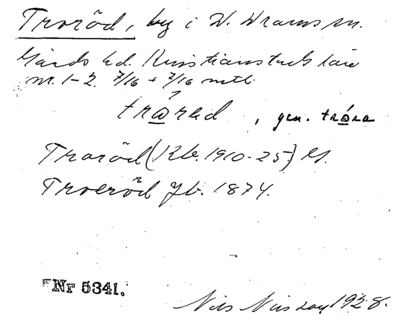 Troröd, by i V. Vrams sn.
Gärds hd. Kristianstads län
nr. 1-2. 7/16 + 7/16 mtl.
tråred, gen. tråra
Traröd (Kb. 1910-25) G.
Troeröd Jb. 1874.
Nr 5341.
Nils 1928.